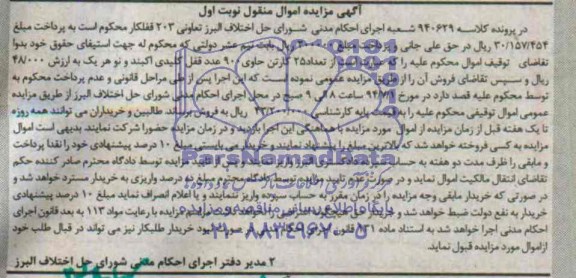 آگهی مزایده اموال منقول نوبت اول
در پرونده کلاسه ۹۴۰۶۲۹ شعبه اجرای احکام مدنی شورای حل اختلاف البرز تعاونی ۲۰۳ قفلکار محکوم است به پرداخت مبلغ
۳۰/۱۵۷/۴۵۴ ریال در حق علی جانی و پرداخت مبلغ ریال بابت نیم عشر دولتی که محکوم له جهت استیفای حقوق خود بدوا
تقاضای توقیف اموال محکوم علیه را که عبارتند از تعداد ۲۵ کارتن حاوی ۹۰ عدد قفل کلیدی اکبند و نو هر یک به ارزش ۴۸/۰۰۰
ریال و سپس تقاضای فروش آن را از طریق مزایده عمومی نموده است که این اجرا پس از طی مراحل قانونی و عدم پرداخت محکوم به
توسط محکوم علیه قصد دارد در مورخ ساعت ۹ صبح در محل اجرای احکام مدنی شورای حل اختلاف البرز از طریق مزایده
عمومی اموال توقیفی محکوم علیه را به قیمت پایه کارشناسی ریال به فروش برساند طالبین و خریداران می توانند همه روزه
تا یک هفته قبل از زمان مزایده از اموال مورد مزایده با هماهنگی این اجرا بازدید و در زمان مزایده حضورا شرکت نمایند بدیهی است اموال
مزایده به کسی فروخته خواهد شد که بالاترین مبلغ را پیشنهاد نمایند و خریدار می بایستی مبلغ ۱۰ درصد پیشنهادی خود را نقدا پرداخت
و مابقی را ظرف مدت دو هفته به حساب مزایده توسط دادگاه محترم صادر کننده حکم
تقاضای انتقال مالکیت اموال نماید و در صورت عدم تایید مزایده توسط دادگاه محترم مبلغ ده درصد واریزی به خریدار مسترد خواهد شد و
در صورتی که خریدار مابقی وجه مزایده را در زمان مقرر به حساب سپرده واریز ننمایند و یا اعلام انصراف نماید مبلغ ۱۰ درصد پیشنهادی
خریدار به نفع دولت ضبط خواهد شد و خریدار مزایده با رعایت مواد ۱۱۳ به بعد قانون اجرای
احکام مدنی اجرا خواهد شد به استناد ماده ۱۳۱ قانون نبود خریدار طلبکار نیز می تواند در قبال طلب خود
از اموال مورد مزایده قبول نماید.
۲ مدیر دفتر اجرای احکام مدنی شورای حل اختلاف البرز
ParsNamadData
پایگاه اطلاع رسانی مناقصه و مزایده
۰۲۱-۸۸۳۴۹۶۷۰-۵